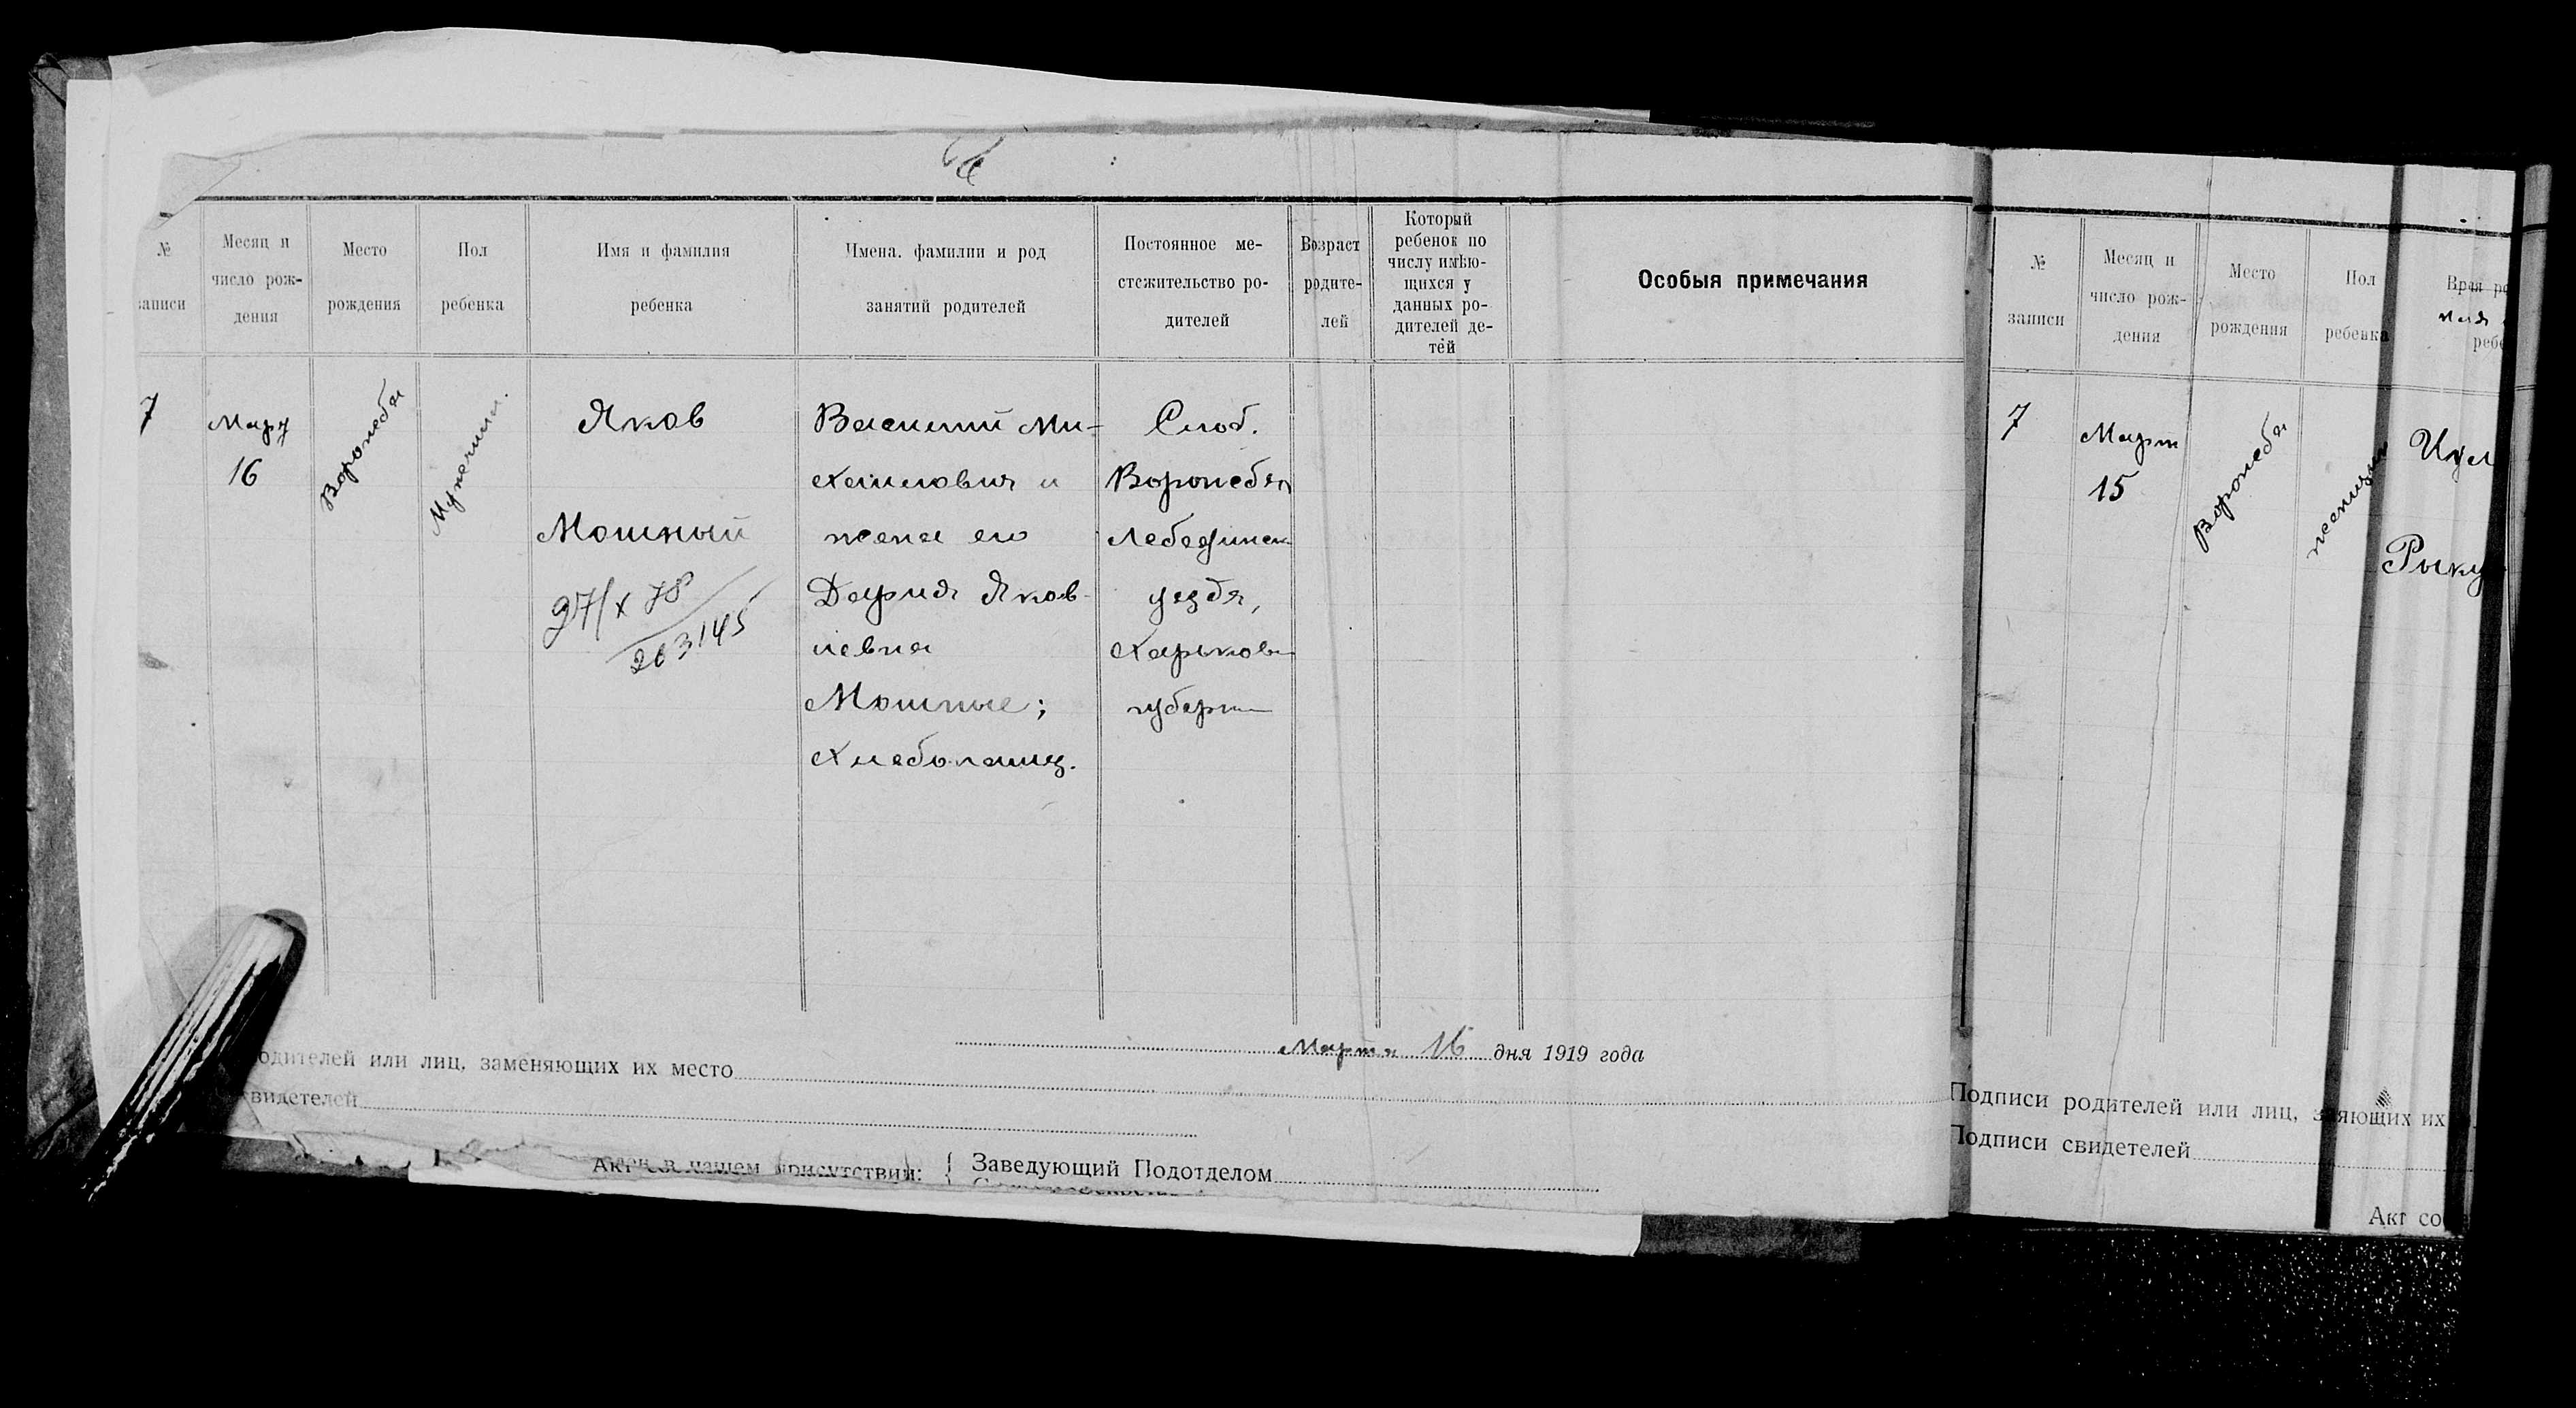 №
записи
Месяц и
число рож-
дения
Место
рождения
Пол
ребенка
Имя и фамилия
ребенка
Имена, фамилии и род
занятий родителей
Постоянное ме-
стожительство ро-
дителей
Возраст
родите-
лей
Который
ребенок по
числу имѣю-
щихся у
данных ро-
дителей де-
тей
Особыя примечания
7
Март
16
Воронеба
Мужчин.
Яков
Мошный
27/X 78
263145
Василий Ми-
хайлович и
жена его
Дария Яков-
левна
Мошные;
Хлебопашц.
Слоб.
Воронеба
Лебединск
уезда,
Харьков
губерн
Марта 16 дня 1919 года
одителей или лиц, заменяющих их место
видетелей
Акт в нашем присутствии: { Заведующий Подотделом
№
записи
Месяц и
число рож-
дения
Место
рождения
Пол
ребенка
7
Март
15
Воронеба
женщин
Подписи родителей или лиц, яющих их
Подписи свидетелей
Акт со